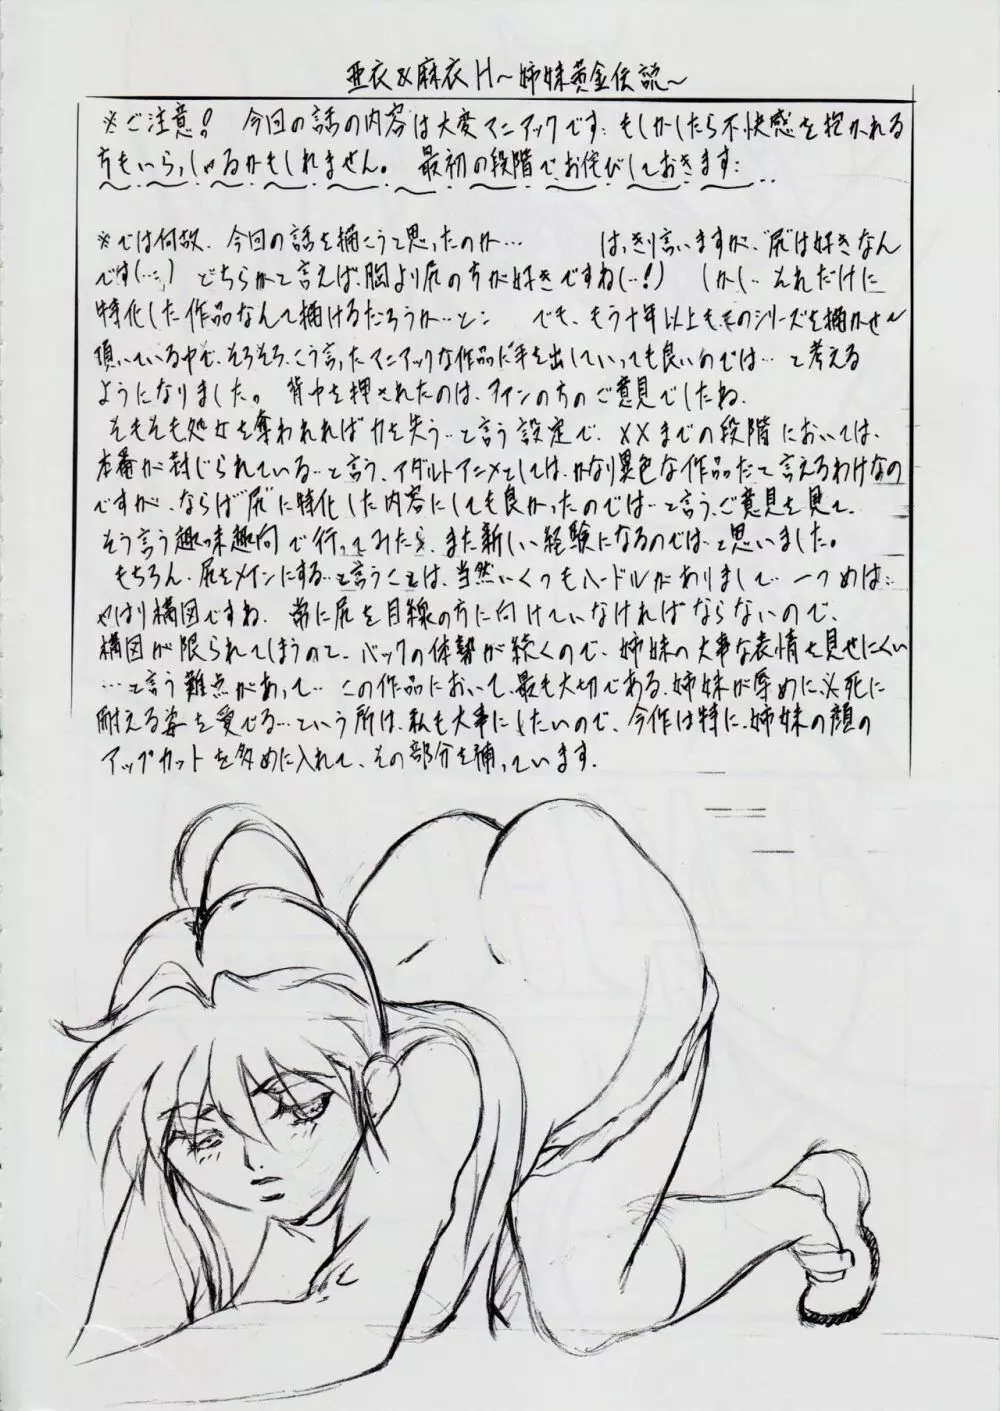 亜衣&麻衣H〜姉妹黄金伝説〜
※ご注意! 今回の話の内容は大変マニアックです… もしかしたら不快感を抱かれる
方もいらっしゃるかもしれません。 最初の段階でお侘びしておきます…
※では何故、今回の話を描こうと思ったのか… はっきり言いますが、“尻”は好きなん
です(…) どちらかと言えば、胸より尻の方が好きですね(…!) しかし… それだけに
特化した作品なんて描けるだろうか…と… でも、もう十年以上もこのシリーズを描かせ
頂いている中で、そろそろ、こう言ったマニアックな作品に手を出していっても良いのでは… と考える
ようになりました。 背中を押されたのは、ファンの方のご意見でしたね。
そもそも処女を奪われれば力を失う…と言う設定で、××までの段階においては、
本番が封じられている…と言う、アダルトアニメとしては、かなり異色な作品だと言えるわけなの
ですが、ならば“尻”に特化した内容にしても良かったのでは…と言う、ご意見を見て、
そう言う趣味趣向で行ってみたら、また新しい経験になるのでは…と思いました。
もちろん、尻をメインにする…と言うことは、当然いくつもハードルがありまして… 一つめは…
やはり構図ですね。 常に尻を目線の方に向けていなければならないので、
構図が限られてしまうのと、バックの体勢が続くので、姉妹の大事な表情を見せにくい
…と言う難点があって… この作品において、最も大切である、姉妹が辱めに、必死に
耐える姿を愛でる…という所は、私も大事にしたいので、今作は特に、姉妹の顔の
アップカットを多めに入れて、その部分を補っています。